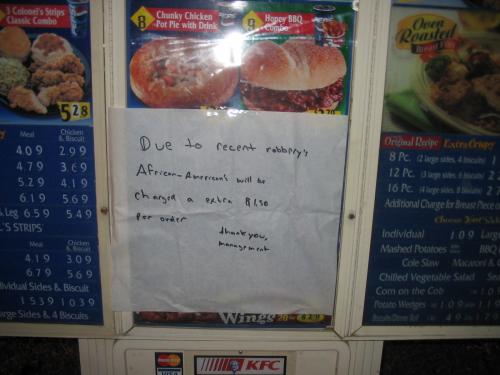 3 Colonel's Strips
Classic Combo
528
8
Chunky Chicken
Pot Pie with Drink
9
Honey BBQ
Combo
Oven
Roasted
Due to recent robbery's
African-American's will be
charged a extra $1.50
Per order
thank you,
management
Meal
Chicken
& Biscuit
4.09 2.99
4.79 3.69
5.29 4.19
6.19 5.69
Leg 6.59 5.49
L'S STRIPS
Meal
Chicken
& Biscuit
4.19 3.09
6.79 5.69
ividual Sides & Biscuit
15.39 10.39
arge Sides, & 4 Biscuits
Original Recipe Extra Crispy
8 Pc. (2 large sides, 4 biscuits)
12 Pc.
16 Pc.
Additional Charge for Breast Piece
Individual 1.09
Mashed Potatoes BBQ
Cole Slaw Macaroni &
Chilled Vegetable Salad
Corn on the Cob
Potato Wedges
Wings
MasterCard
KFC